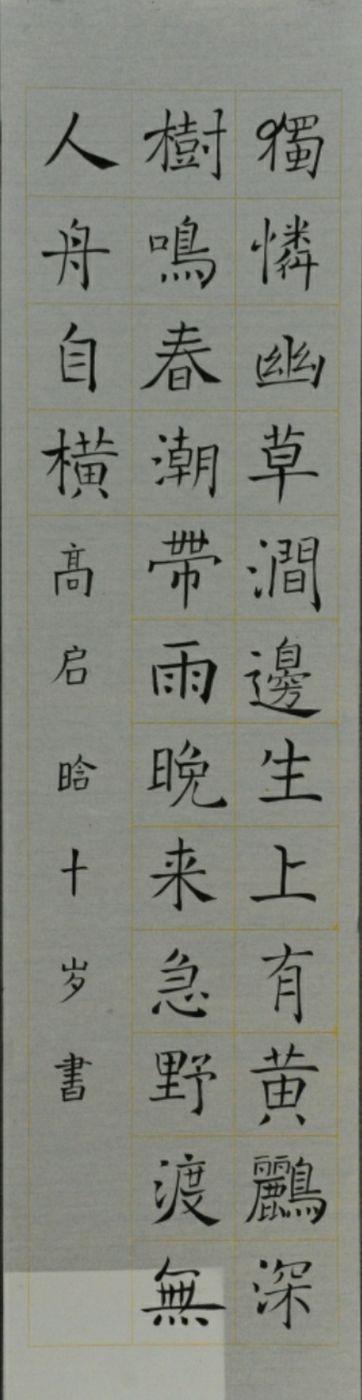 獨憐幽草澗邊生上有黄鸝深
樹鳴春潮帶雨晚来急野渡無
人舟自橫高启晗十岁書